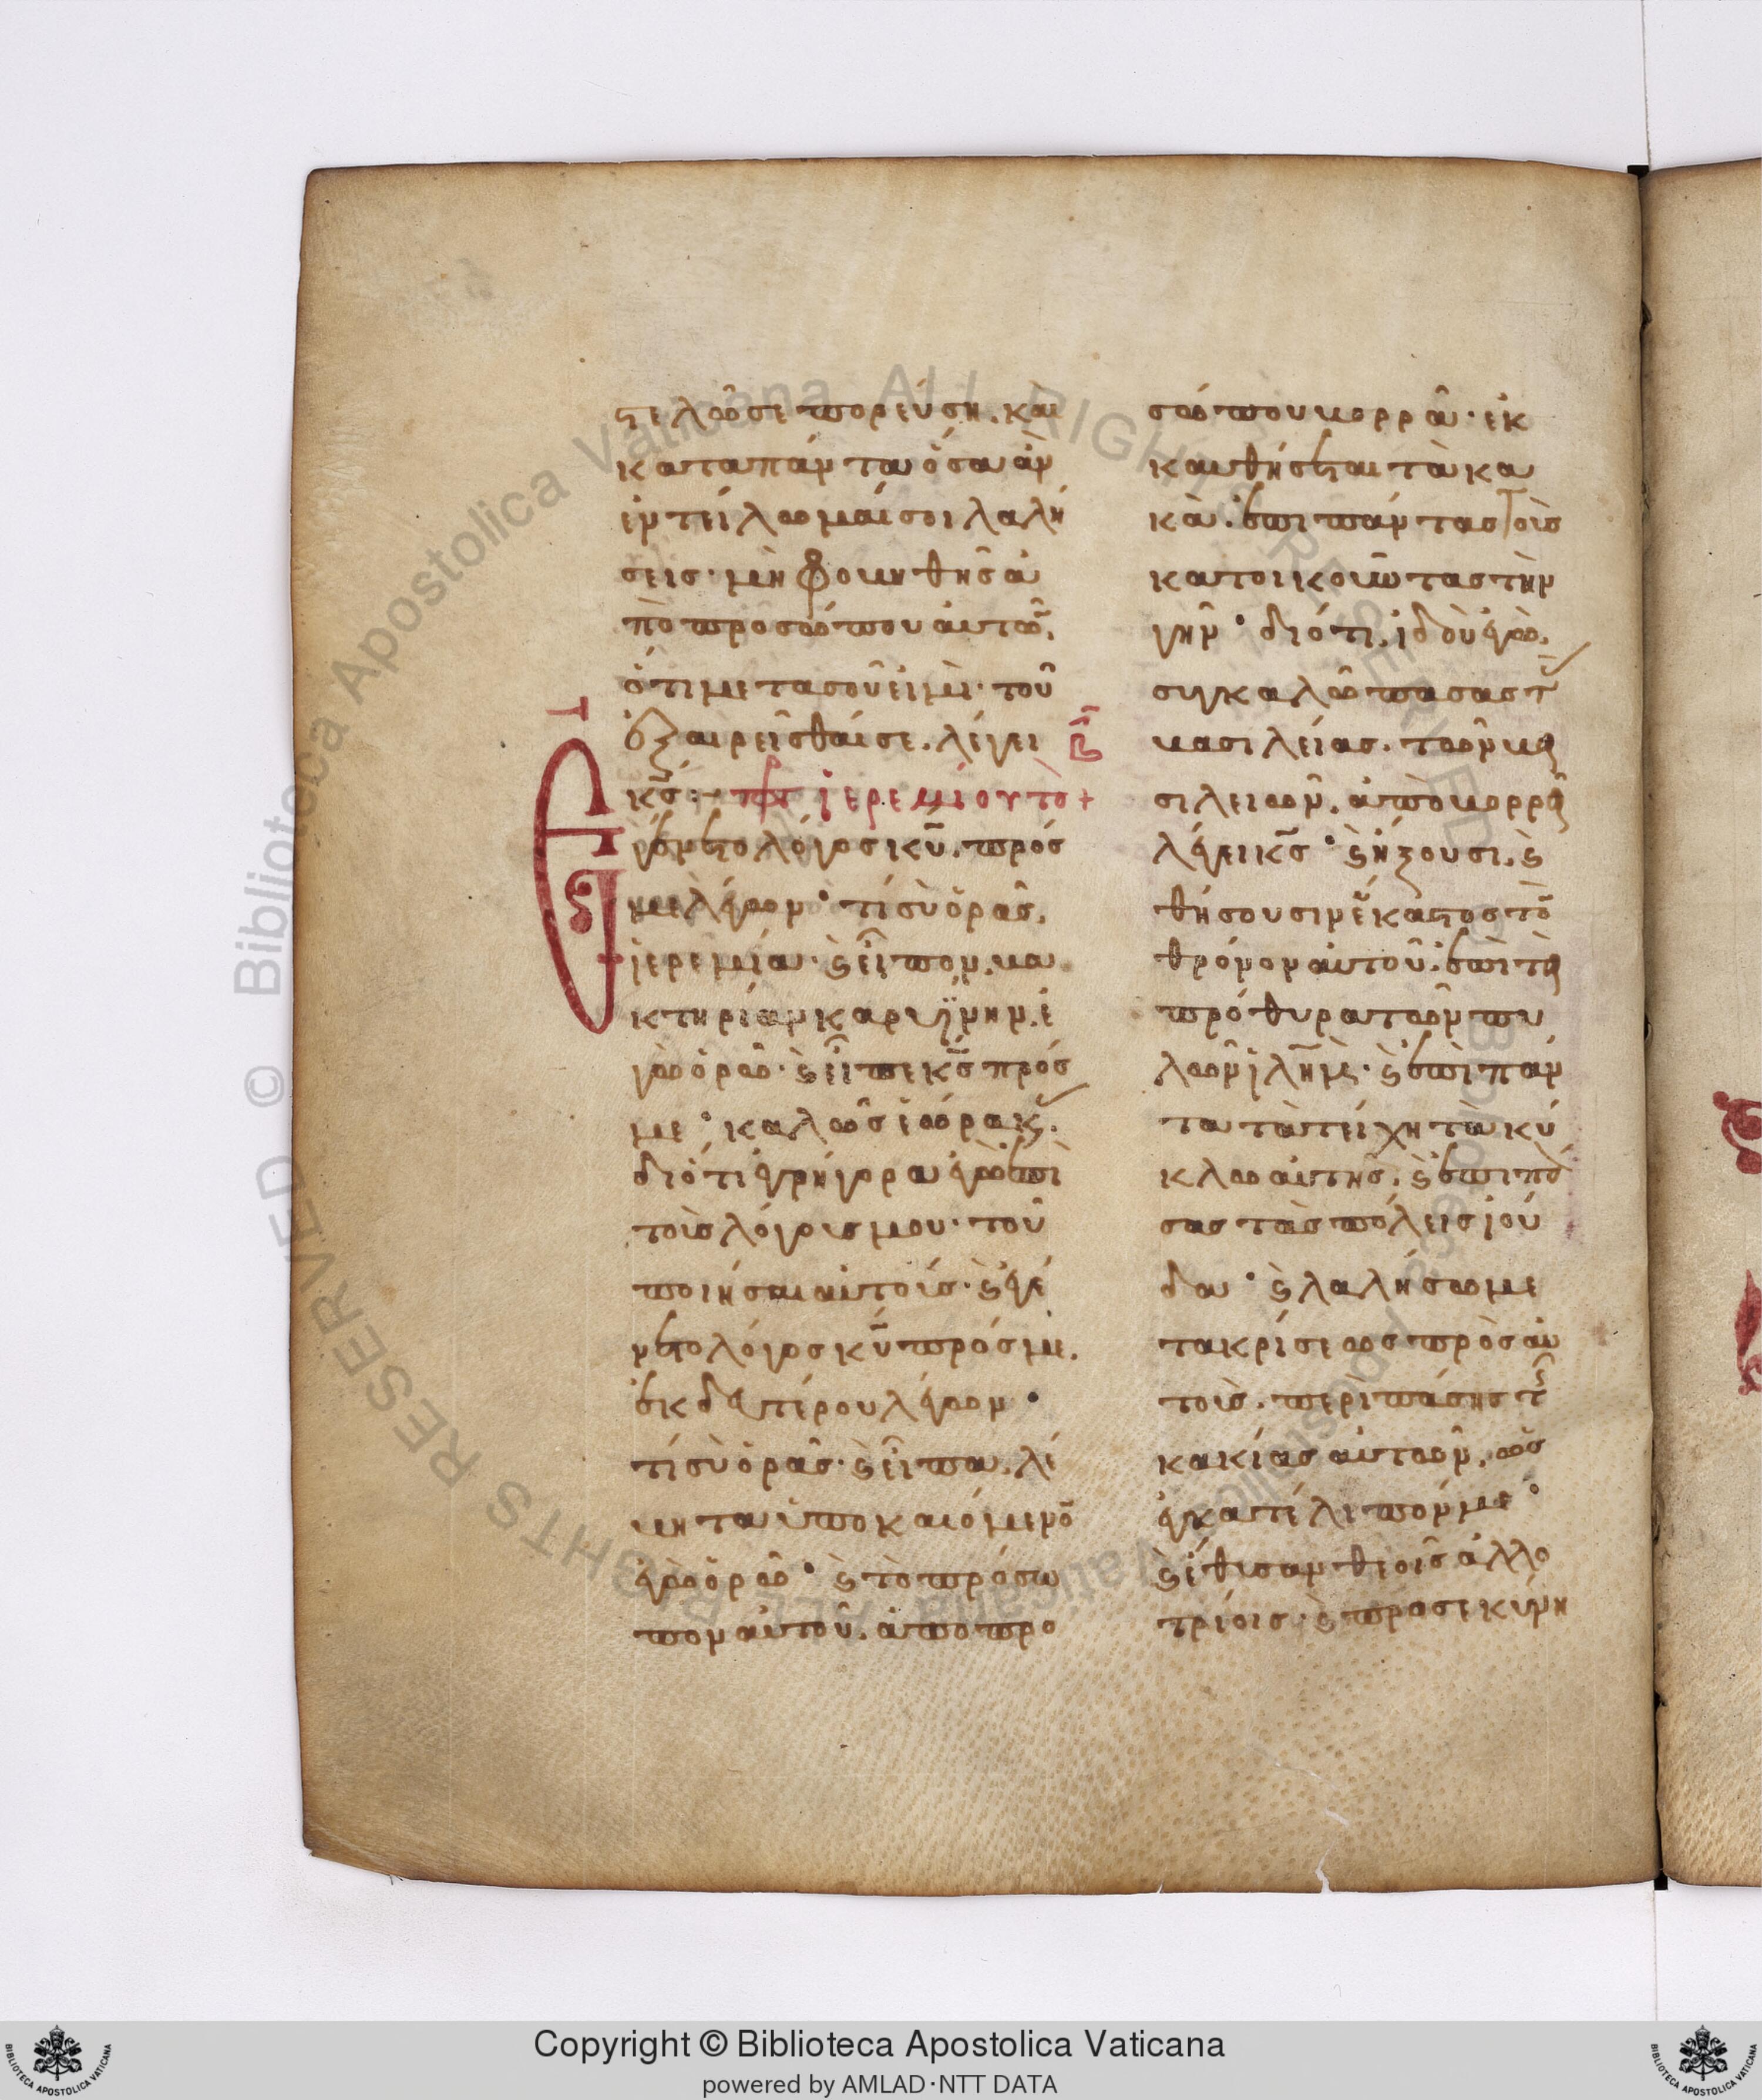 στελῶ σε πορεύση. καὶ
κατα πάντα ὅσα ἀν
ἐντείλωμαί σοι λαλή
σεις· μὴ φοβηθῆσ ἀ
πὸ προσώπου ἀυτῶ̅.
ὅτι μετα σοῦ εἰμὶ· τοῦ
ἐξαιρεῖσθαί σε. λέγει
κ̅σ̅:+ προφητ ἰερεμίου τὸ +
Β
Ἐγένετο λόγοσ κ̅υ̅. πρόσ
με λέγων· τί σὺ ὁρᾶσ.
ἰερεμία· ϗ εἶπον. βα
κτηρίαν καρυΐνην. ἐ
γὼ ὁρῶ· ϗ εἶπε κ̅σ̅ πρόσ
με· καλῶσ ἑώρακς.
διότι ἐγρήγορα ἐγὼ ἐπὶ
τοὺσ λόγουσ μου· τοῦ
ποιήσαι αυτούσ· ϗ ἐγέ
νετο λόγοσ κ̅υ̅ πρόσ με.
ἐκ δευτέρου λέγων·
τί σὺ ὁρᾶσ· ϗ εἶπα. λέ
βητα ὑποκαιόμενο̅
ἐγὼ ὁρῶ· ϗ τὸ πρόσω
πον ἀυτοῦ. ἀπο προ
σώπου βορρᾶ· ἐκ
καυθήσεται τὰ κα
κὰ. ἐπι πάντας τοὺσ
κατοικοῦντας τὴν
γῆν· διότι. ἰδοὺ ἐγὼ.
συγκαλῶ πασας τ
βασιλείας. τῶν βα
σιλειῶν. ἀπὸ βορρᾶ
λέγει κ̅σ̅· ϗ ἥξουσι. ϗ
θήσουσιν ἕκαστος τὸ̅
θρόνον ἀυτοῦ. ἐπὶ τὰ
πρόθυρα τῶν πυ
λῶν ἰ̅λ̅η̅μ̅· ϗ ἐπὶ πάν
τα τὰ τείχη τὰ κύ
κλω αὐτῆσ. ϗ ἐπι πά
σας τὰς πόλεις ἰού
δα· ϗ λαλήσω με
τα κρίσεως πρὸς αυ
τοὺσ. περὶ πάσης τ
κακίας αὐτῶν. ὡσ
ἐγκατέλιπόν με·
ϗ ἔθυσαν θεοῖσ ἀλλο
τρίοις· ϗ προσεκύνη